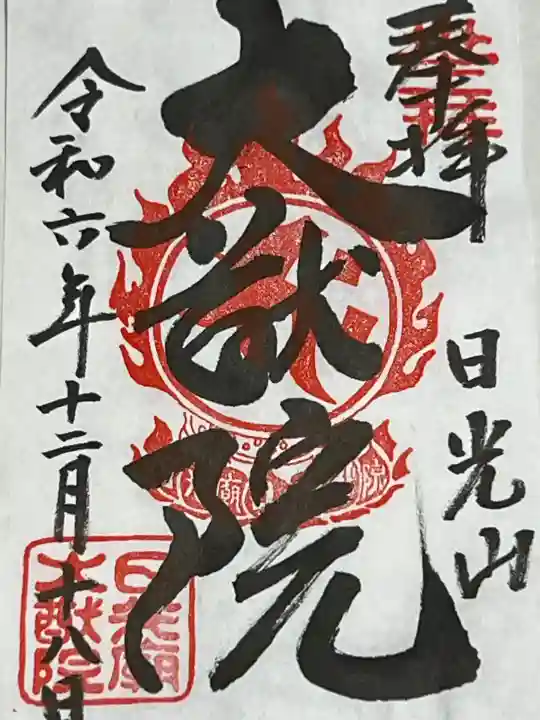 奉拝
日光山
大猷院
令和六年十二月十八日
日光廟
大猷院